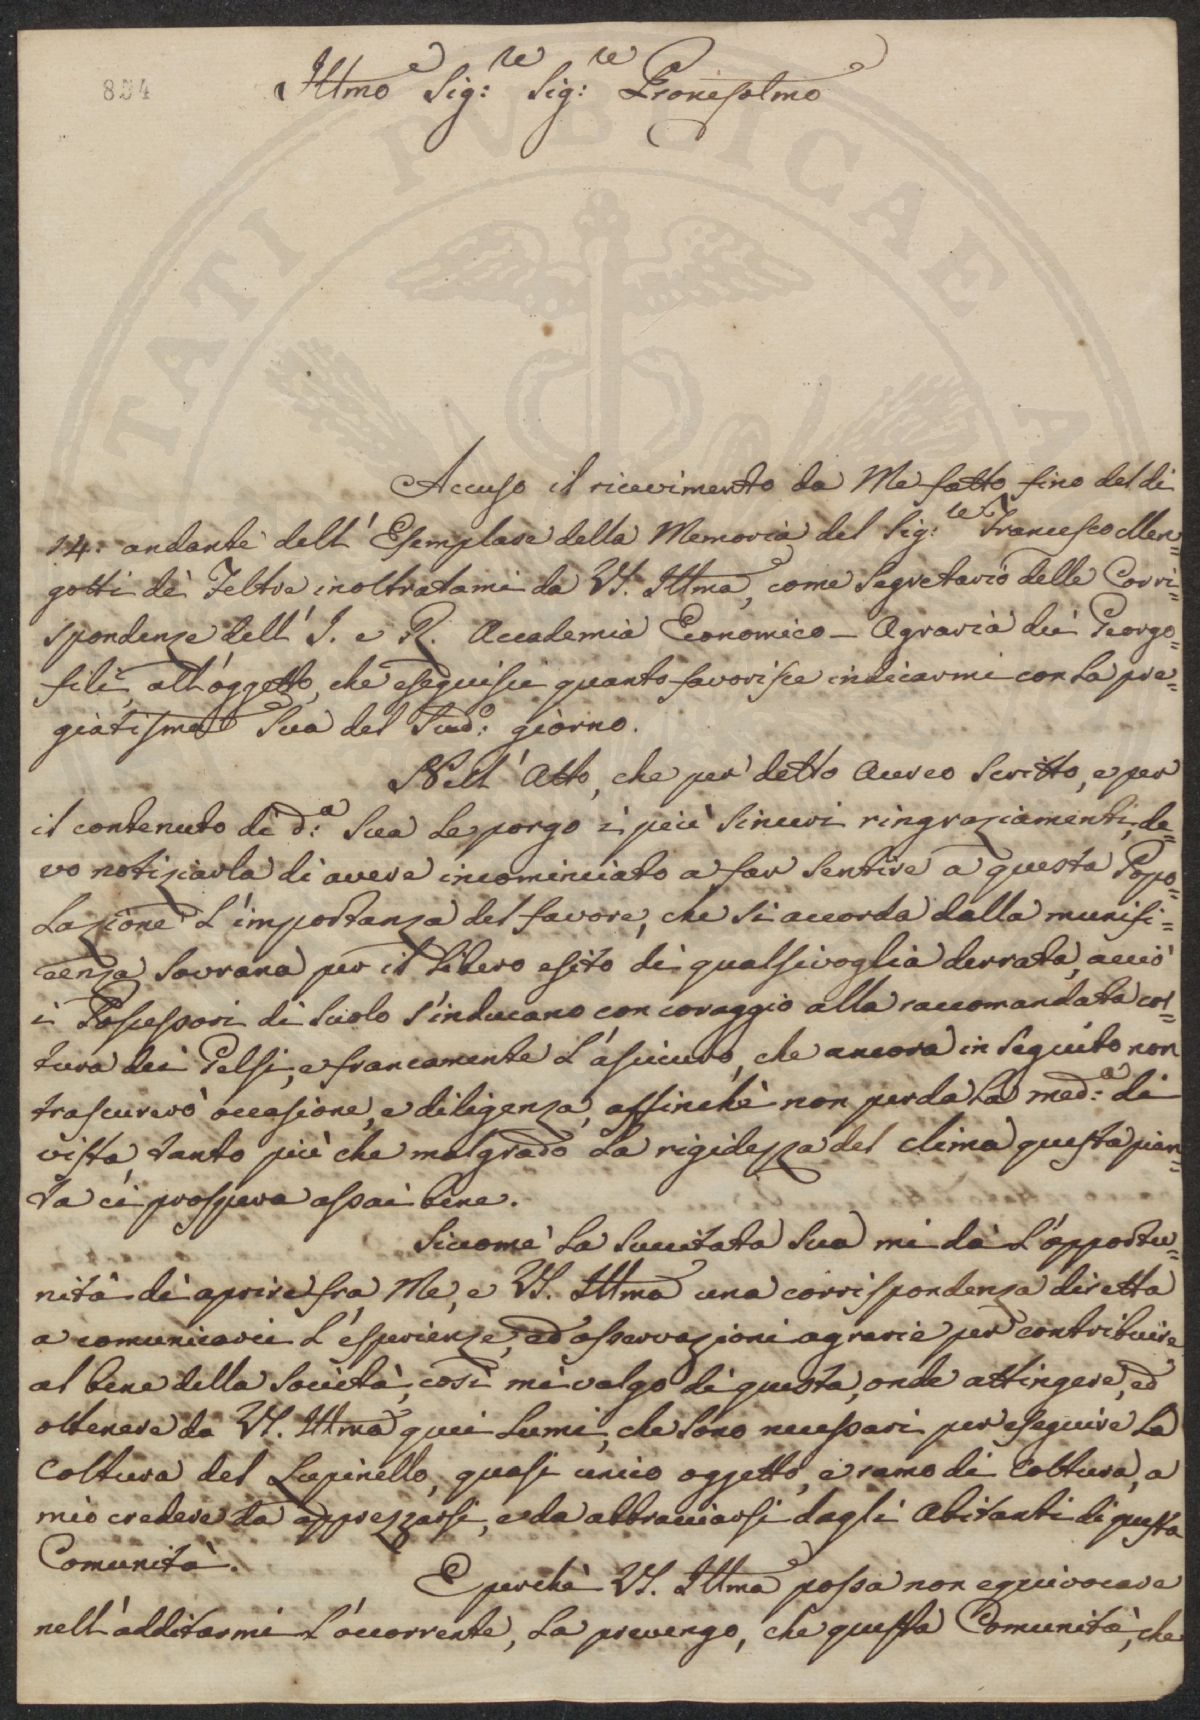 894
Illmo Sig:re Sig:re Pronesolmo
Accuso il ricevimento da Me fatto fino del di
14: andante dell' Esemplare della Memoria del Sig:re Francesco Men=
gotti di Feltre inoltratami da VS. Illma, come Segretario delle Corri=
spondenze dell' I. e R. Accademia Economico-Agraria dei Georgo=
fili, all'oggetto, che eseguisci quanto favorisce indicarmi con la pre=
giatisma Sua del Sud:o giorno.
Nell' Atto, che per detto Aureo Scritto, e per
il contenuto di d:a Sua Le porgo i più sinceri ringraziamenti, de=
vo notiziarla di avere incominciato a far sentire a questa Popo=
lazione l'importanza del favore, che si accorda dalla munifi=
cenza Sovrana per il libero esito di qualsivoglia derrata, acciò
i Possessori di Suolo s'inducano con coraggio alla raccomandata col=
tura dei Gelsi, e francamente l'assicuro, che ancora in Seguito non
trascurerò occasione, e diligenza, affinchè non perda la med:a di
vista, tanto più che malgrado la rigidezza del clima questa pian=
ta ci prospera assai bene.
Siccome la Succitata Sua mi dà l'opportu=
nità di aprire fra Me, e VS. Illma una corrispondenza diretta
a comunicarci l'esperienze, ed osservazioni agrarie per contribuire
al bene della Società, così mi valgo di questa, onde attingere, ed
ottenere da VS. Illma quei lumi, che sono necessari per eseguire la
Coltura del Lupinello, quasi unico oggetto, e ramo di Coltura, a
mio credere da apprezzarsi, e da abbracciarsi dagli Abitanti di questa
Comunità.
E perchè VS. Illma possa non equivocare
nell'additarmi l'occorrente, la prevengo, che questa Comunità, che